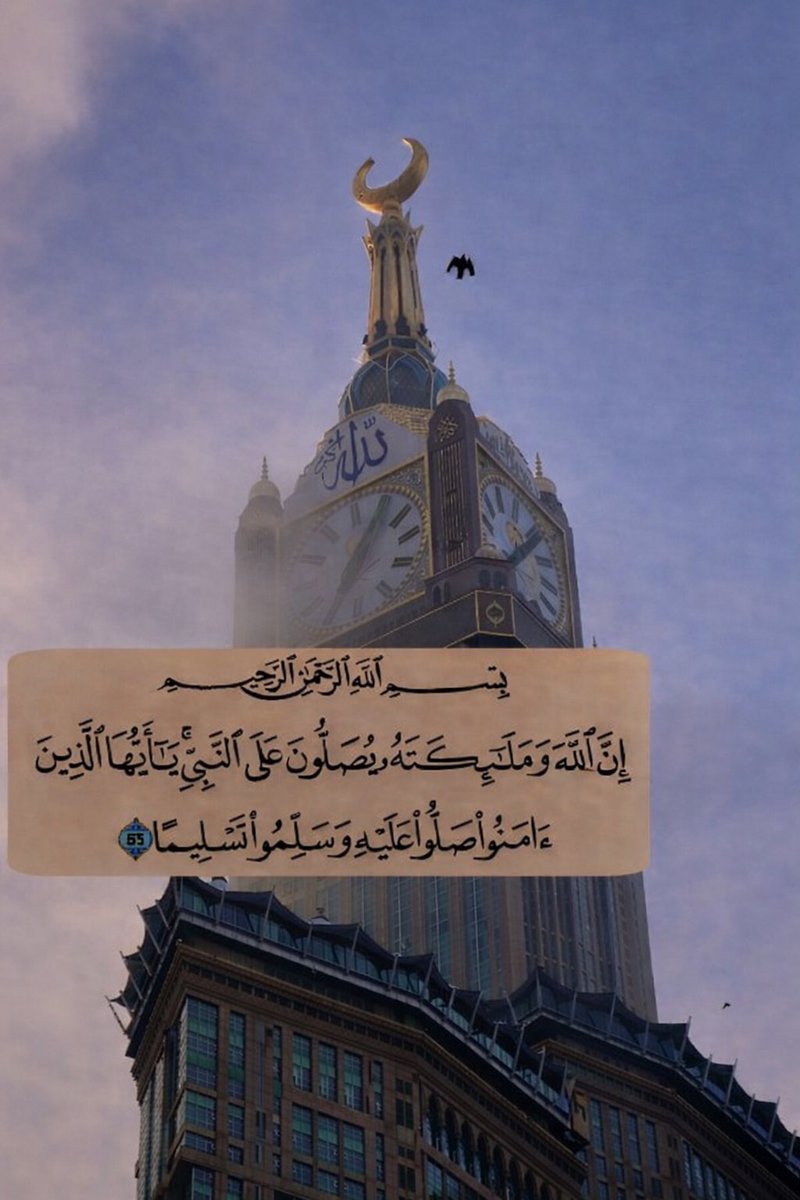 الله أكبر
بِسْمِ ٱللَّهِ ٱلرَّحْمَٰنِ ٱلرَّحِيمِ
إِنَّ ٱللَّهَ وَمَلَٰٓئِكَتَهُۥ يُصَلُّونَ عَلَى ٱلنَّبِيِّ ۚ يَٰٓأَيُّهَا ٱلَّذِينَ
ءَامَنُوا۟ صَلُّوا۟ عَلَيْهِ وَسَلِّمُوا۟ تَسْلِيمًا 65